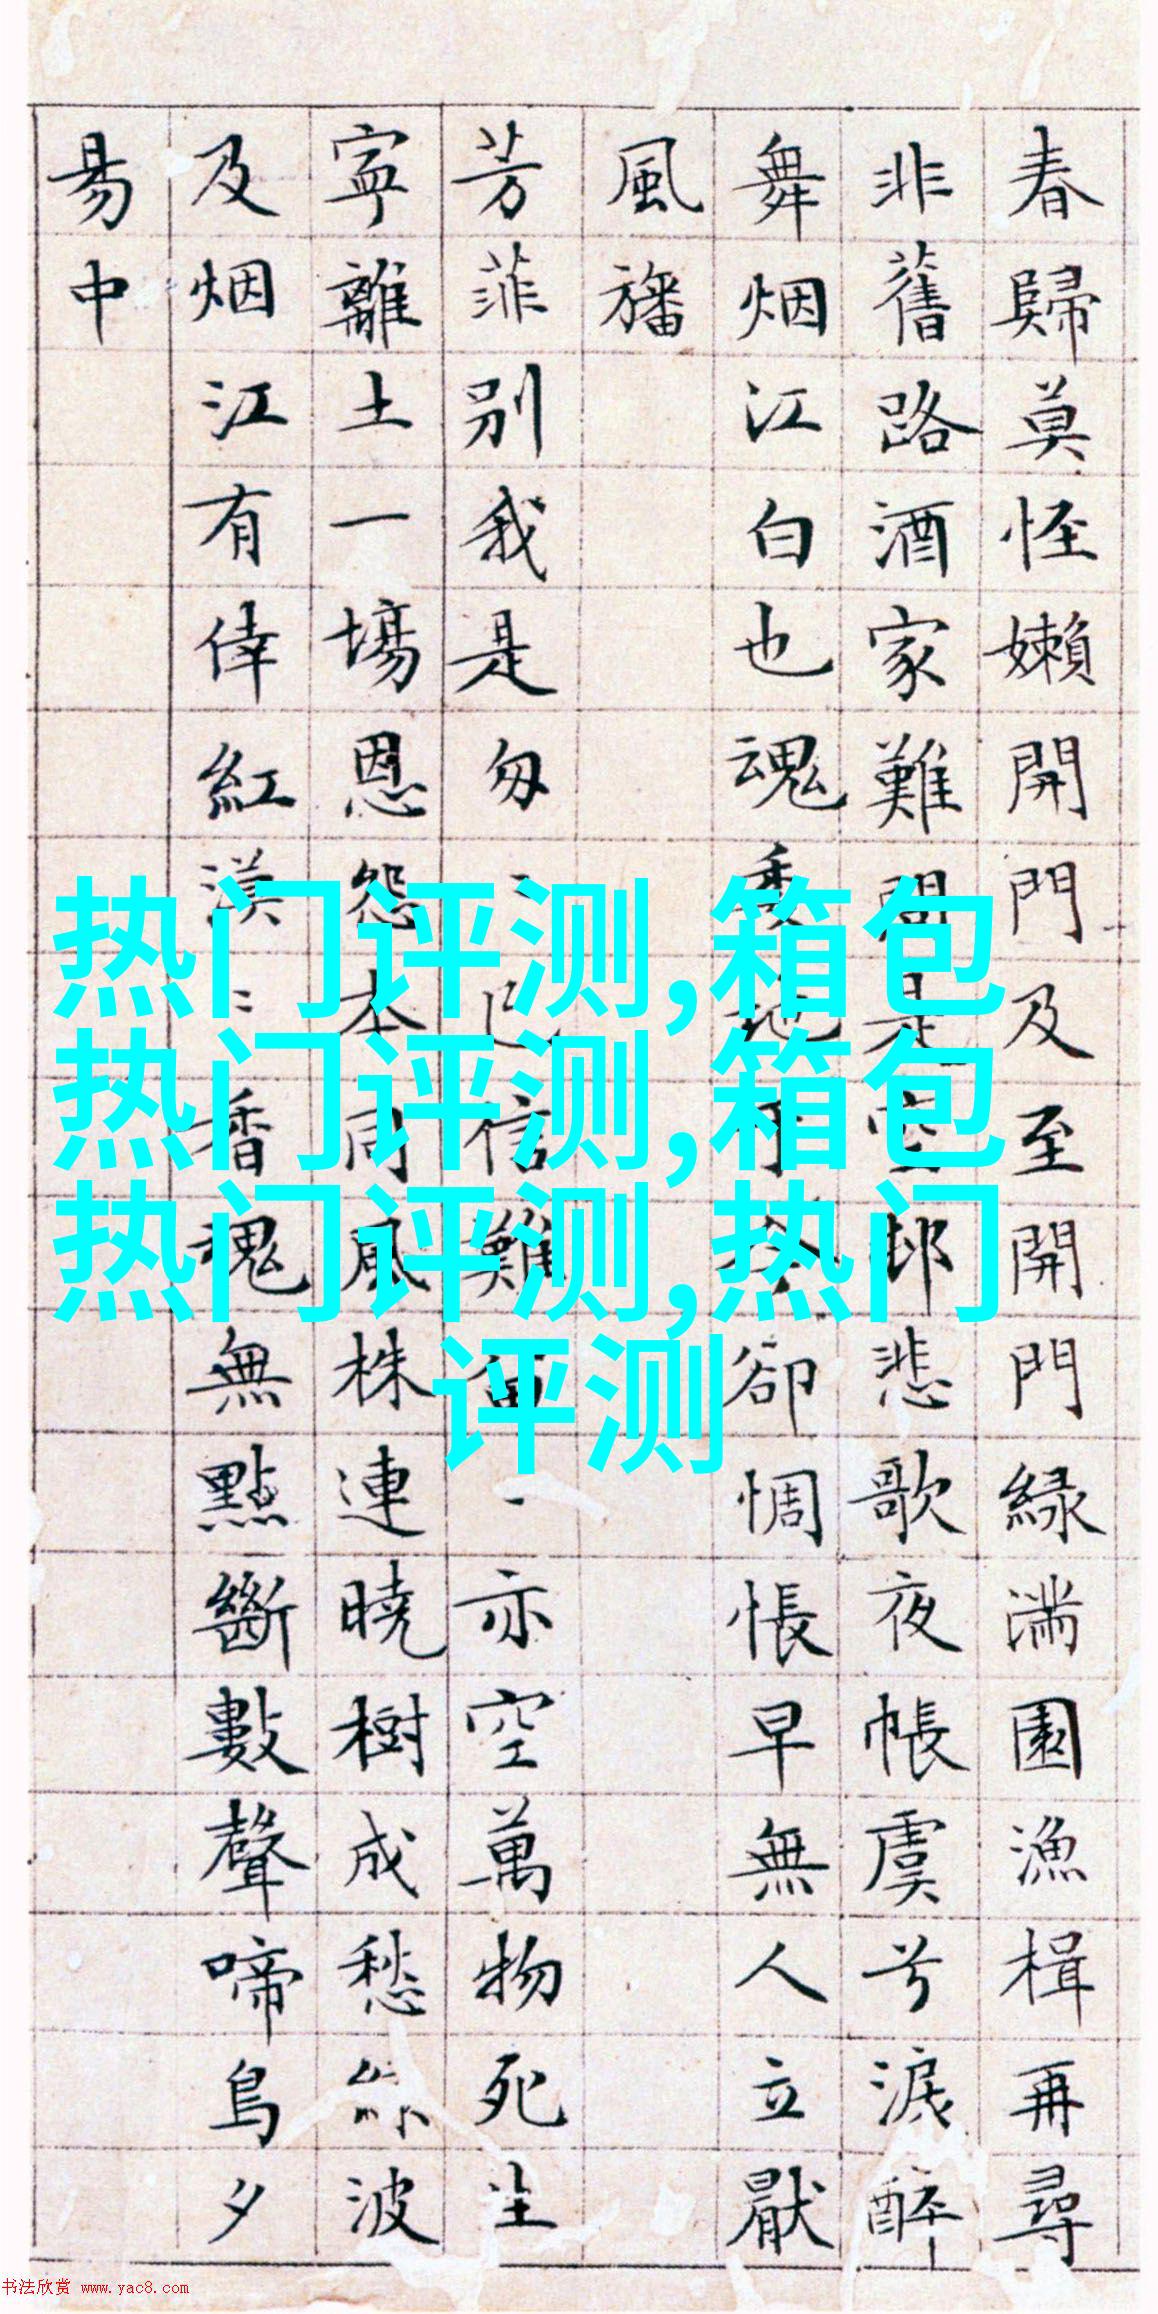 春歸莫怪嬾開門及至開門緑滿園漁楫再尋
非舊路酒家難問是空邨悲歌夜帳虞兮淚醉
舞烟江白也魂委地于今卻惆悵早無人立厭
風旛
芳菲別我是匆〻一信難留一亦空萬物死生
寧離土一場恩怨本同風株連曉樹成愁綠波
及烟江有倖紅漠〻香魂無點斷數聲啼鳥夕
易中
热门评测,箱包
热门评测,箱包
热门评测,热门
评测
书法欣赏 www.yac8.com